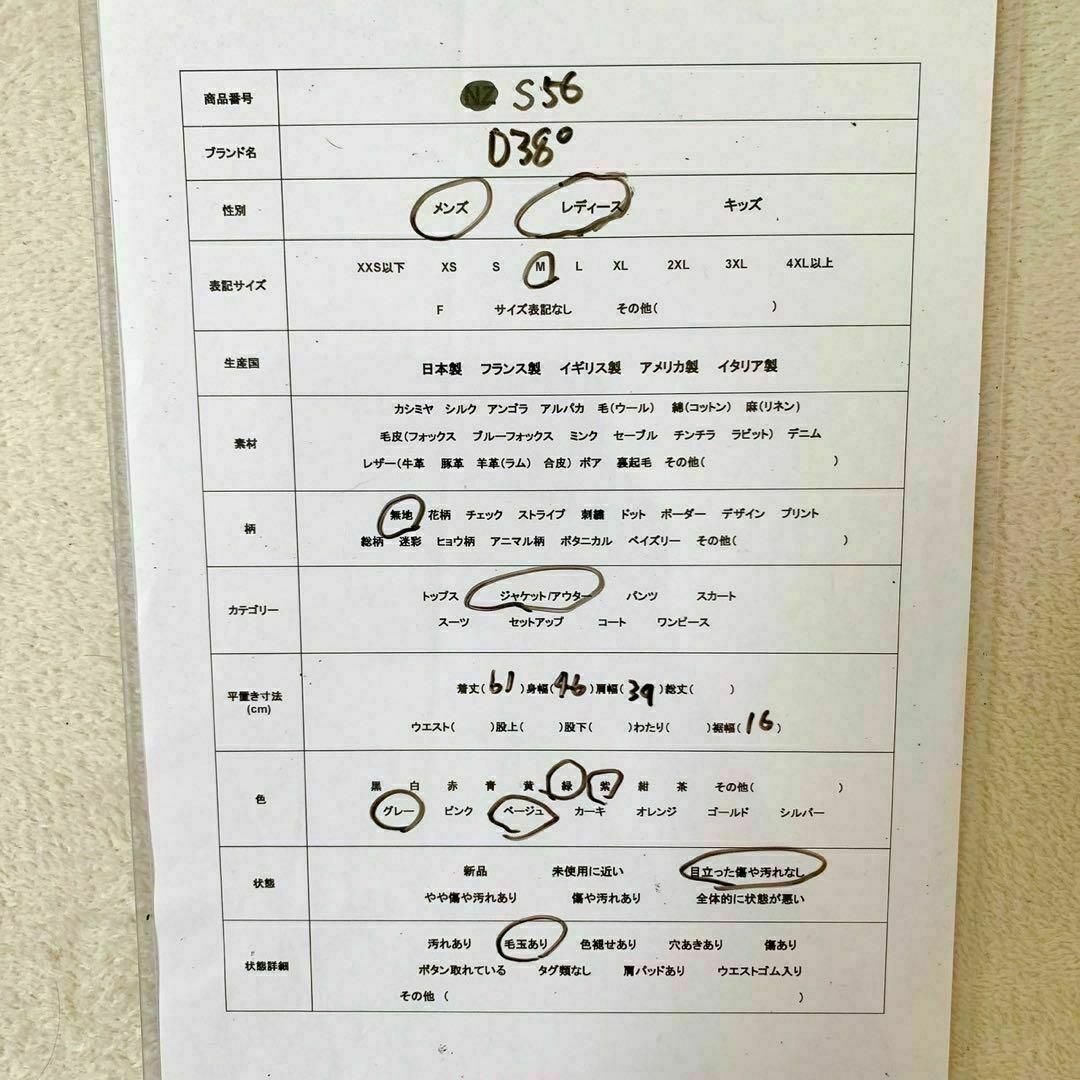 商品番号 NZ S56
ブランド名 D38°
性別 メンズ レディース キッズ
XXS以下 XS S M L XL 2XL 3XL 4XL以上
表記サイズ
F サイズ表記なし その他( )
生産国 日本製 フランス製 イギリス製 アメリカ製 イタリア製
カシミヤ シルク アンゴラ アルパカ 毛(ウール) 綿(コットン) 麻(リネン)
素材 毛皮(フォックス ブルーフォックス ミンク セーブル チンチラ ラビット) デニム
レザー(牛革 豚革 羊革(ラム) 合皮) ボア 裏起毛 その他( )
柄 無地 花柄 チェック ストライプ 刺繍 ドット ボーダー デザイン プリント
総柄 迷彩 ヒョウ柄 アニマル柄 ボタニカル ペイズリー その他( )
カテゴリー トップス ジャケット/アウター パンツ スカート
スーツ セットアップ コート ワンピース
平置き寸法 着丈(61)身幅(46)肩幅(39)総丈( )
(cm) ウエスト( )股上( )股下( )わたり( )裾幅(16)
色 黒 白 赤 青 黄 緑 紫 紺 茶 その他( )
グレー ピンク ベージュ カーキ オレンジ ゴールド シルバー
状態 新品 未使用に近い 目立った傷や汚れなし
やや傷や汚れあり 傷や汚れあり 全体的に状態が悪い
汚れあり 毛玉あり 色褪せあり 穴あきあり 傷あり
状態詳細 ボタン取れている タグ類なし 肩パッドあり ウエストゴム入り
その他 ( )